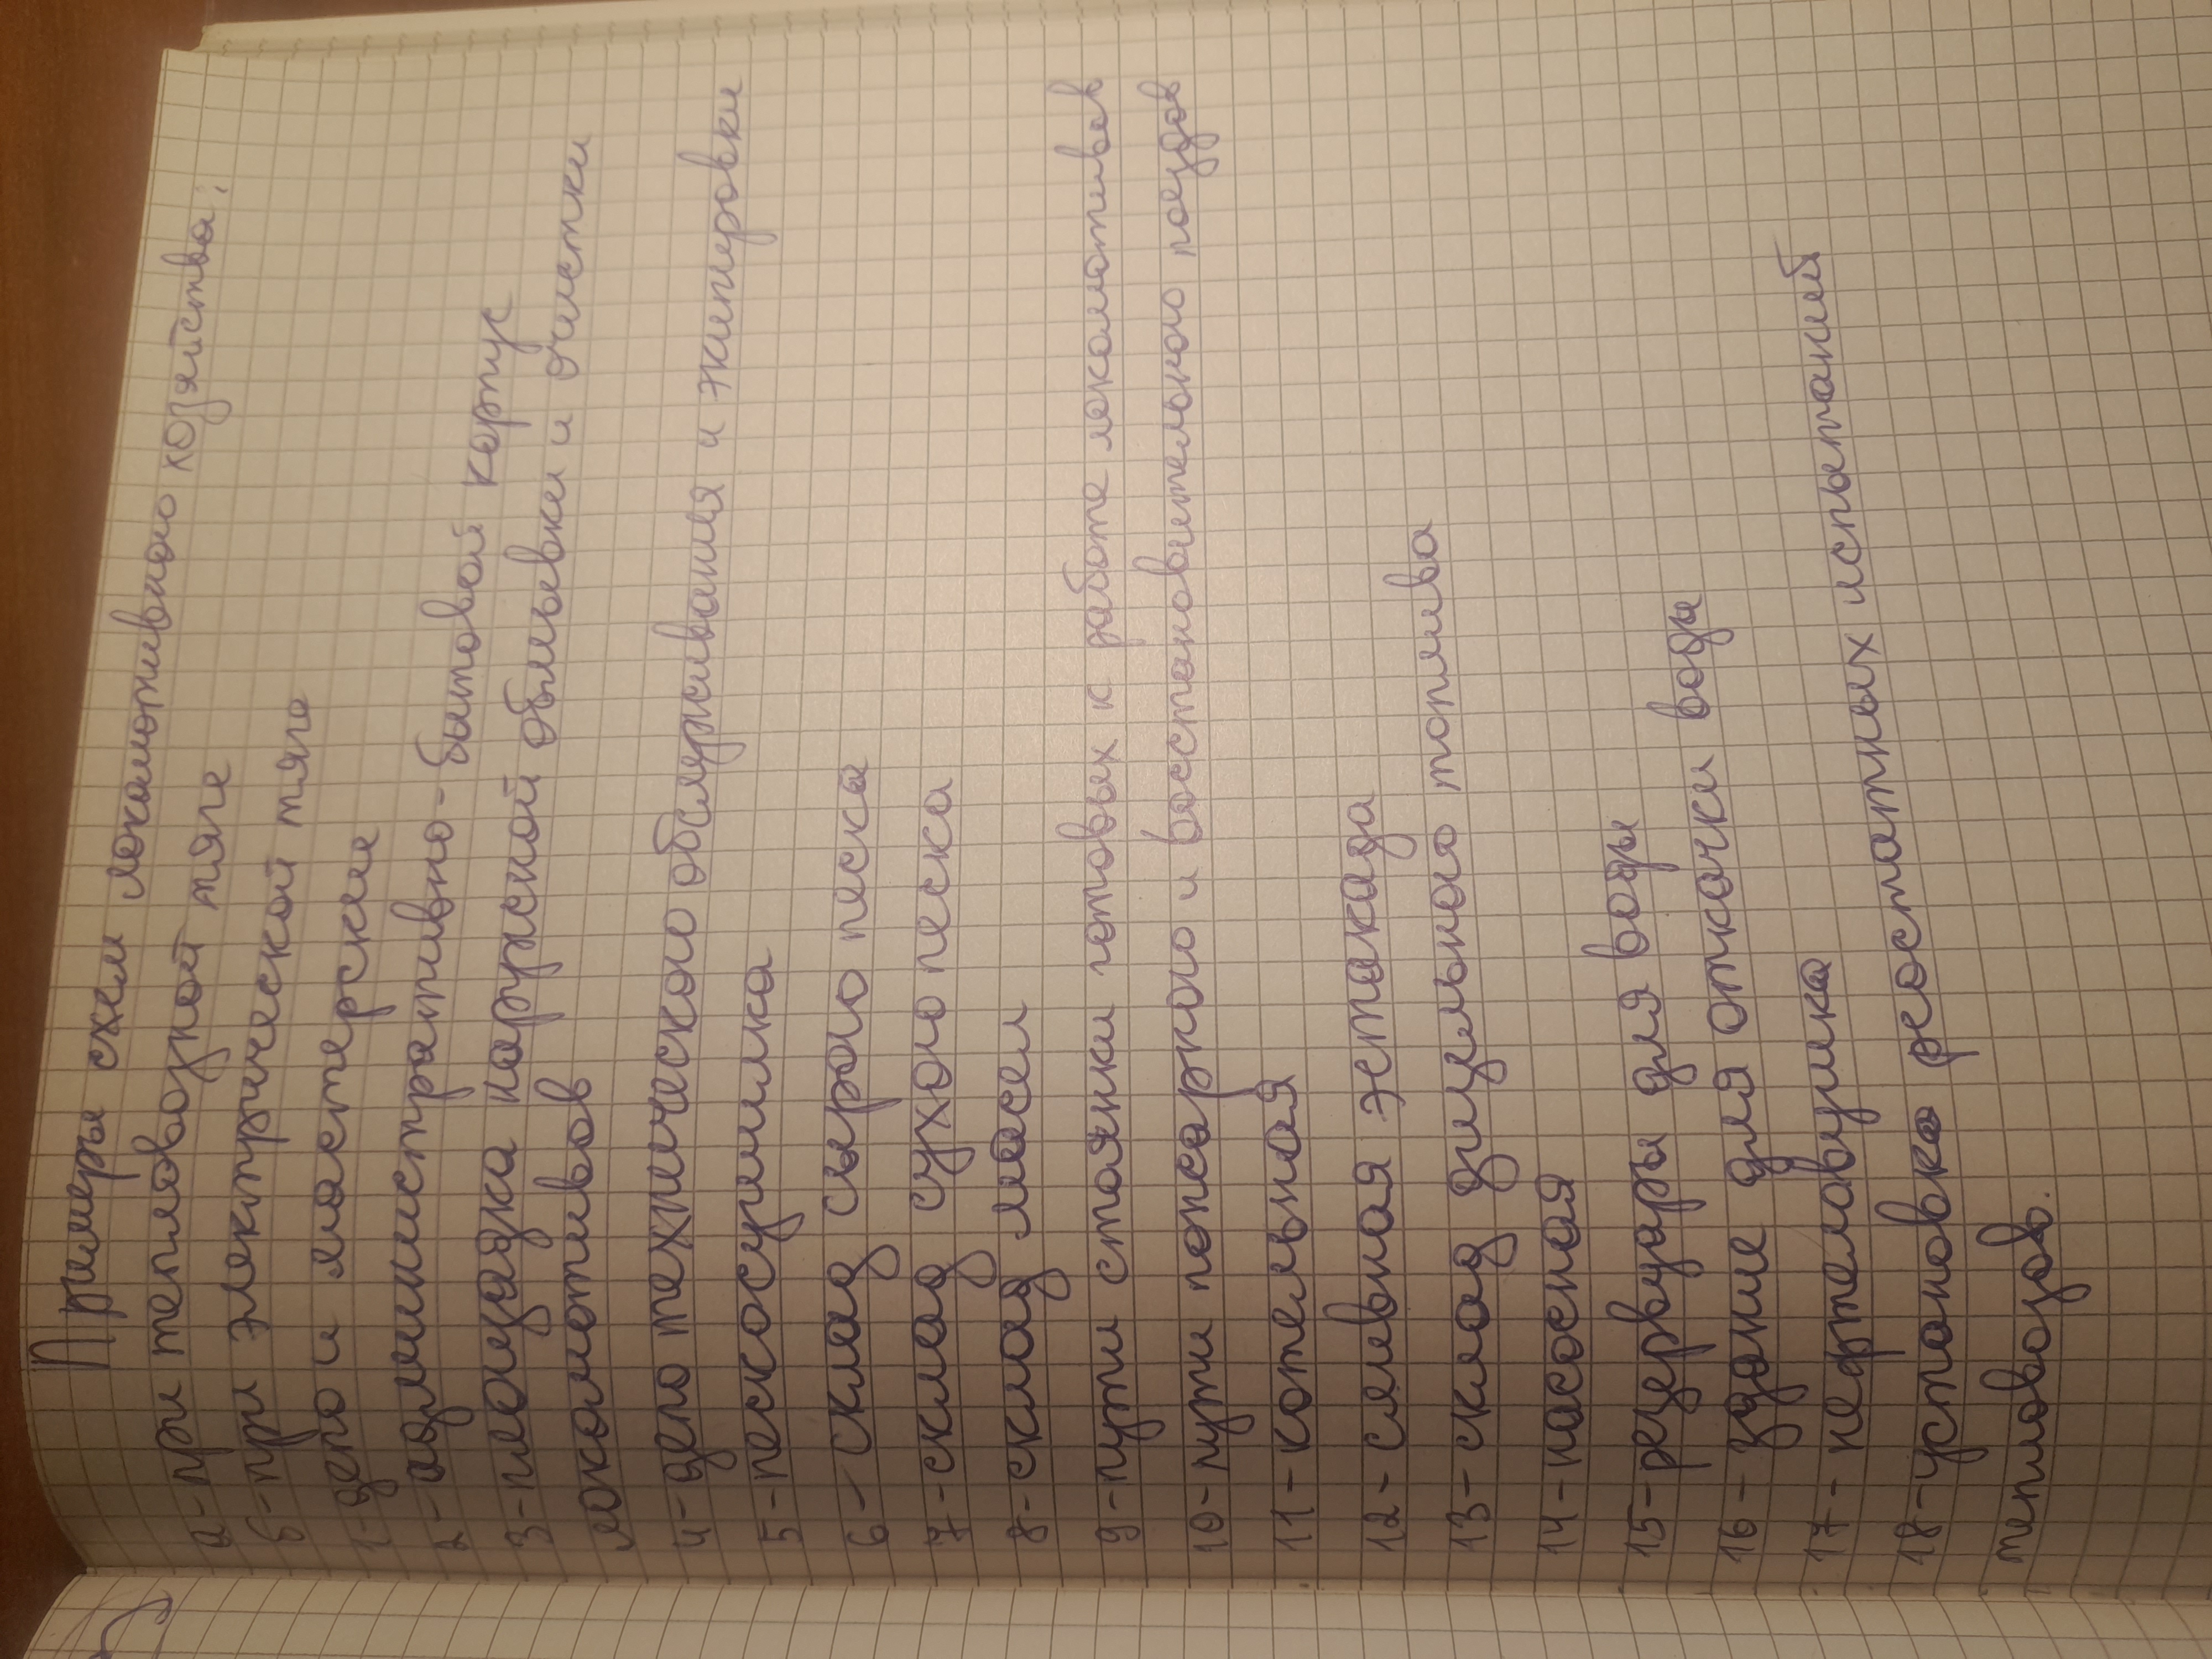 Примеры схем локомотивного хозяйства:
а-при тепловозной тяге
б-при электрической тяге
1-депо и мастерские
2-административно-бытовой корпус
3-площадка наружной обмывки и очистки
локомотивов
4-депо технического обслуживания и экипировки
5-пескосушилка
6-склад сырого песка
7-склад сухого песка
8-склад масел
9-пути стоянки готовых к работе локомотивов
10-пути пожарного и восстановительного поездов
11-котельная
12-сливная эстакада
13-склад дизельного топлива
14-насосная
15-резервуары для воды
16-здание для откачки воды
17-нефтеловушка
18-установка реостатных испытаний
тепловозов.